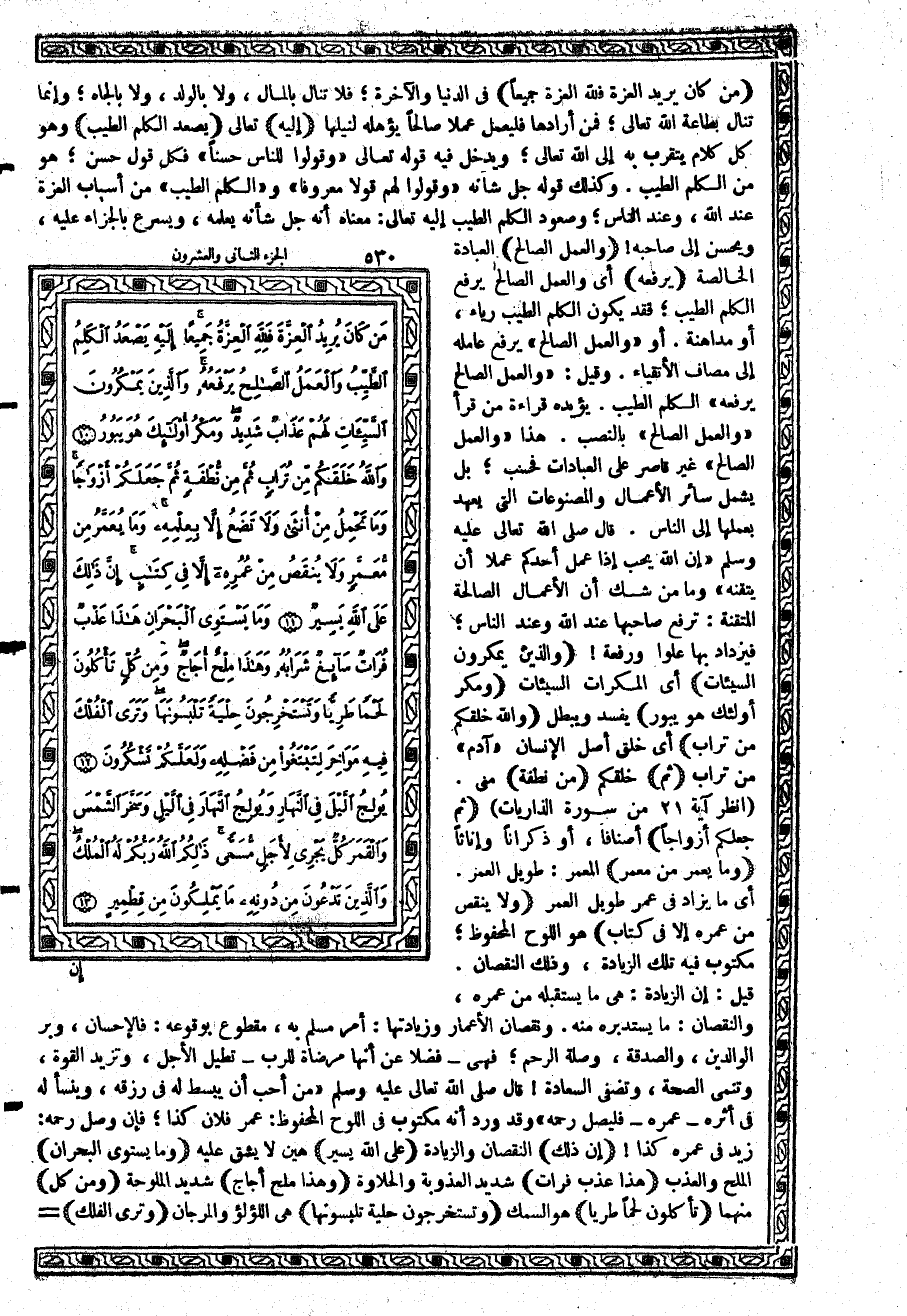 (من كان يريد العزة فلله العزة جميعاً) فى الدنيا والآخرة ؛ فلا تنال بالمال ، ولا بالولد ، ولا بالجاه ؛ وإنما
تنال بطاعة الله تعالى ؛ فمن أرادها فليعمل عملا صالحاً يؤهله لنيلها (إليه) تعالى (يصعد الكلم الطيب) وهو
كل كلام يتقرب به إلى الله تعالى ؛ ويدخل فيه قوله تعالى «وقولوا للناس حسناً» فكل قول حسن ؛ هو
من الكلم الطيب . وكذلك قوله جل شأنه «وقولوا لهم قولا معروفا» و«الكلم الطيب» من أسباب العزة
عند الله ، وعند الناس ؛ وصعود الكلم الطيب إليه تعالى: معناه أنه جل شأنه يعلمه ، ويسرع بالجزاء عليه ،
ويحسن إلى صاحبه! (والعمل الصالح) العبادة
الخالصة (يرفعه) أى والعمل الصالح يرفع
الكلم الطيب ؛ فقد يكون الكلم الطيب رياء ،
أو مداهنة . أو «والعمل الصالح» يرفع عامله
إلى مصاف الأتقياء . وقيل : «والعمل الصالح
يرفعه» الكلم الطيب . يؤيده قراءة من قرأ
«والعمل الصالح» بالنصب . هذا «والعمل
الصالح» غير قاصر على العبادات فحسب ؛ بل
يشمل سائر الأعمال والمصنوعات التى يعهد
بعملها إلى الناس . قال صلى الله تعالى عليه
وسلم «إن الله يحب إذا عمل أحدكم عملا أن
يتقنه» وما من شك أن الأعمال الصالحة
المتقنة : ترفع صاحبها عند الله وعند الناس ؛
فيزداد بها علوا ورفعة ! (والذين يمكرون
السيئات) أى المكرات السيئات (ومكر
أولئك هو يبور) يفسد ويبطل (والله خلقكم
من تراب) أى خلق أصل الإنسان «آدم»
من تراب (ثم) خلقكم (من نطفة) منى .
(انظر آية ٢١ من سورة الذاريات) (ثم
جعلكم أزواجاً) أصنافا ، أو ذكراناً وإناثاً
(وما يعمر من معمر) المعمر : طويل العمر .
أى ما يزاد فى عمر طويل العمر (ولا ينقص
من عمره إلا فى كتاب) هو اللوح المحفوظ ؛
مكتوب فيه تلك الزيادة ، وذلك النقصان .
قيل : إن الزيادة : هى ما يستقبله من عمره ،
الجزء الثانى والعشرون
٥٣٠
مَن كَانَ يُرِيدُ ٱلْعِزَّةَ فَلِلَّهِ ٱلْعِزَّةُ جَمِيعًا ۚ إِلَيْهِ يَصْعَدُ ٱلْكَلِمُ
ٱلطَّيِّبُ وَٱلْعَمَلُ ٱلصَّٰلِحُ يَرْفَعُهُۥ ۚ وَٱلَّذِينَ يَمْكُرُونَ
ٱلسَّيِّـَٔاتِ لَهُمْ عَذَابٌ شَدِيدٌ ۖ وَمَكْرُ أُوْلَٰٓئِكَ هُوَ يَبُورُ ⑩
وَٱللَّهُ خَلَقَكُم مِّن تُرَابٍ ثُمَّ مِن نُّطْفَةٍ ثُمَّ جَعَلَكُمْ أَزْوَٰجًا ۚ
وَمَا تَحْمِلُ مِنْ أُنثَىٰ وَلَا تَضَعُ إِلَّا بِعِلْمِهِۦ ۚ وَمَا يُعَمَّرُ مِن
مُّعَمَّرٍ وَلَا يُنقَصُ مِنْ عُمُرِهِۦٓ إِلَّا فِى كِتَٰبٍ ۚ إِنَّ ذَٰلِكَ
عَلَى ٱللَّهِ يَسِيرٌ ⑪ وَمَا يَسْتَوِى ٱلْبَحْرَانِ هَٰذَا عَذْبٌ
فُرَاتٌ سَآئِغٌ شَرَابُهُۥ وَهَٰذَا مِلْحٌ أُجَاجٌ ۖ وَمِن كُلٍّ تَأْكُلُونَ
لَحْمًا طَرِيًّا وَتَسْتَخْرِجُونَ حِلْيَةً تَلْبَسُونَهَا ۖ وَتَرَى ٱلْفُلْكَ
فِيهِ مَوَاخِرَ لِتَبْتَغُوا۟ مِن فَضْلِهِۦ وَلَعَلَّكُمْ تَشْكُرُونَ ⑫
يُولِجُ ٱلَّيْلَ فِى ٱلنَّهَارِ وَيُولِجُ ٱلنَّهَارَ فِى ٱلَّيْلِ وَسَخَّرَ ٱلشَّمْسَ
وَٱلْقَمَرَ كُلٌّ يَجْرِى لِأَجَلٍ مُّسَمًّى ۚ ذَٰلِكُمُ ٱللَّهُ رَبُّكُمْ لَهُ ٱلْمُلْكُ ۚ
وَٱلَّذِينَ تَدْعُونَ مِن دُونِهِۦ مَا يَمْلِكُونَ مِن قِطْمِيرٍ ⑬
إن
والنقصان : ما يستدبره منه . ونقصان الأعمار وزيادتها : أمر مسلم به ، مقطوع بوقوعه : فالإحسان ، وبر
الوالدين ، والصدقة ، وصلة الرحم ؛ فهى ـ فضلا عن أنها مرضاة للرب ـ تطيل الأجل ، وتزيد القوة ،
وتنمى الصحة ، وتضفى السعادة ! قال صلى الله تعالى عليه وسلم «من أحب أن يبسط له فى رزقه ، وينسأ له
فى أثره ـ عمره ـ فليصل رحمه» وقد ورد أنه مكتوب فى اللوح المحفوظ: عمر فلان كذا ؛ فإن وصل رحمه:
زيد فى عمره كذا ! (إن ذلك) النقصان والزيادة (على الله يسير) هين لا يشق عليه (وما يستوى البحران)
الملح والعذب (هذا عذب فرات) شديد العذوبة والحلاوة (وهذا ملح أجاج) شديد الملوحة (ومن كل)
منهما (تأكلون لحماً طريا) هو السمك (وتستخرجون حلية تلبسونها) هى اللؤلؤ والمرجان (وترى الفلك) =